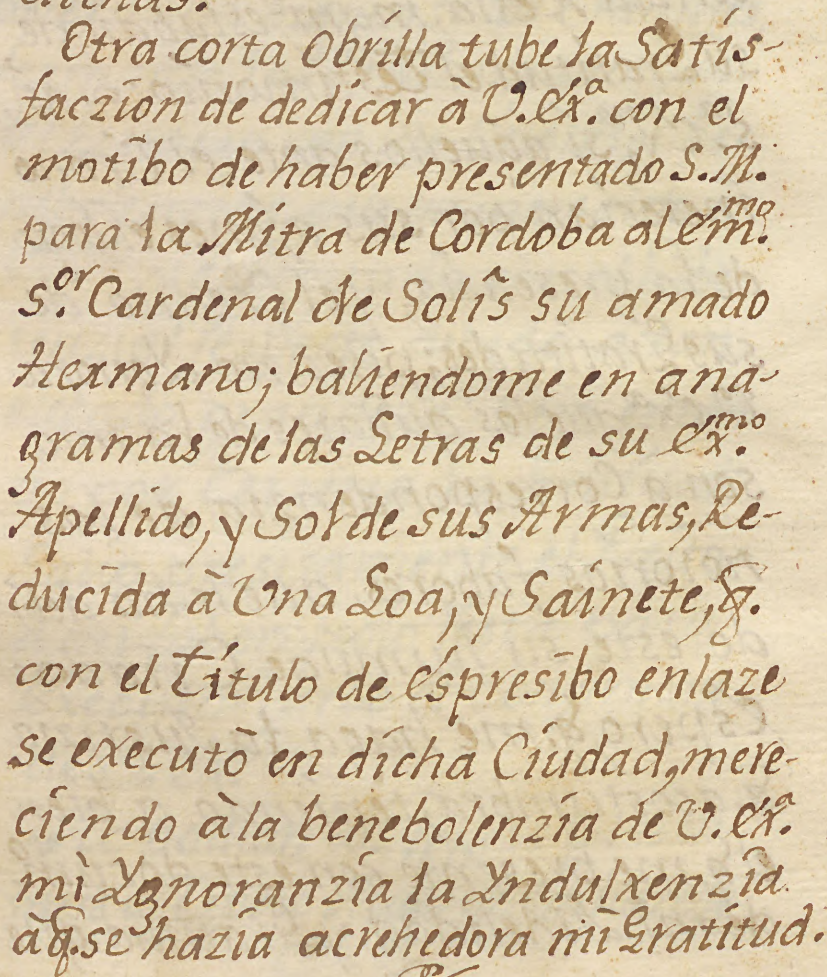 Otra corta Obrilla tube la Satis-
faczion de dedicar à V.Exª. con el
motibo de haber presentado S.M.
para la Mitra de Cordoba al Emᵐᵒ.
S.ᵒʳ Cardenal de Solîs su amado
Hermano; baliendome en ana-
gramas de las Letras de su Ex.ᵐᵒ
Apellido, y Sol de sus Armas, Re-
ducida à Una Loa, y Sainete, q̃.
con el Título de Espresibo enlaze
se executò en dicha Ciudad, mere-
ciendo à la benebolenzia de V.Exª.
mi Ygnoranzia la Yndulxenzia
à q̃. se hazia acrehedora mi Gratitud.